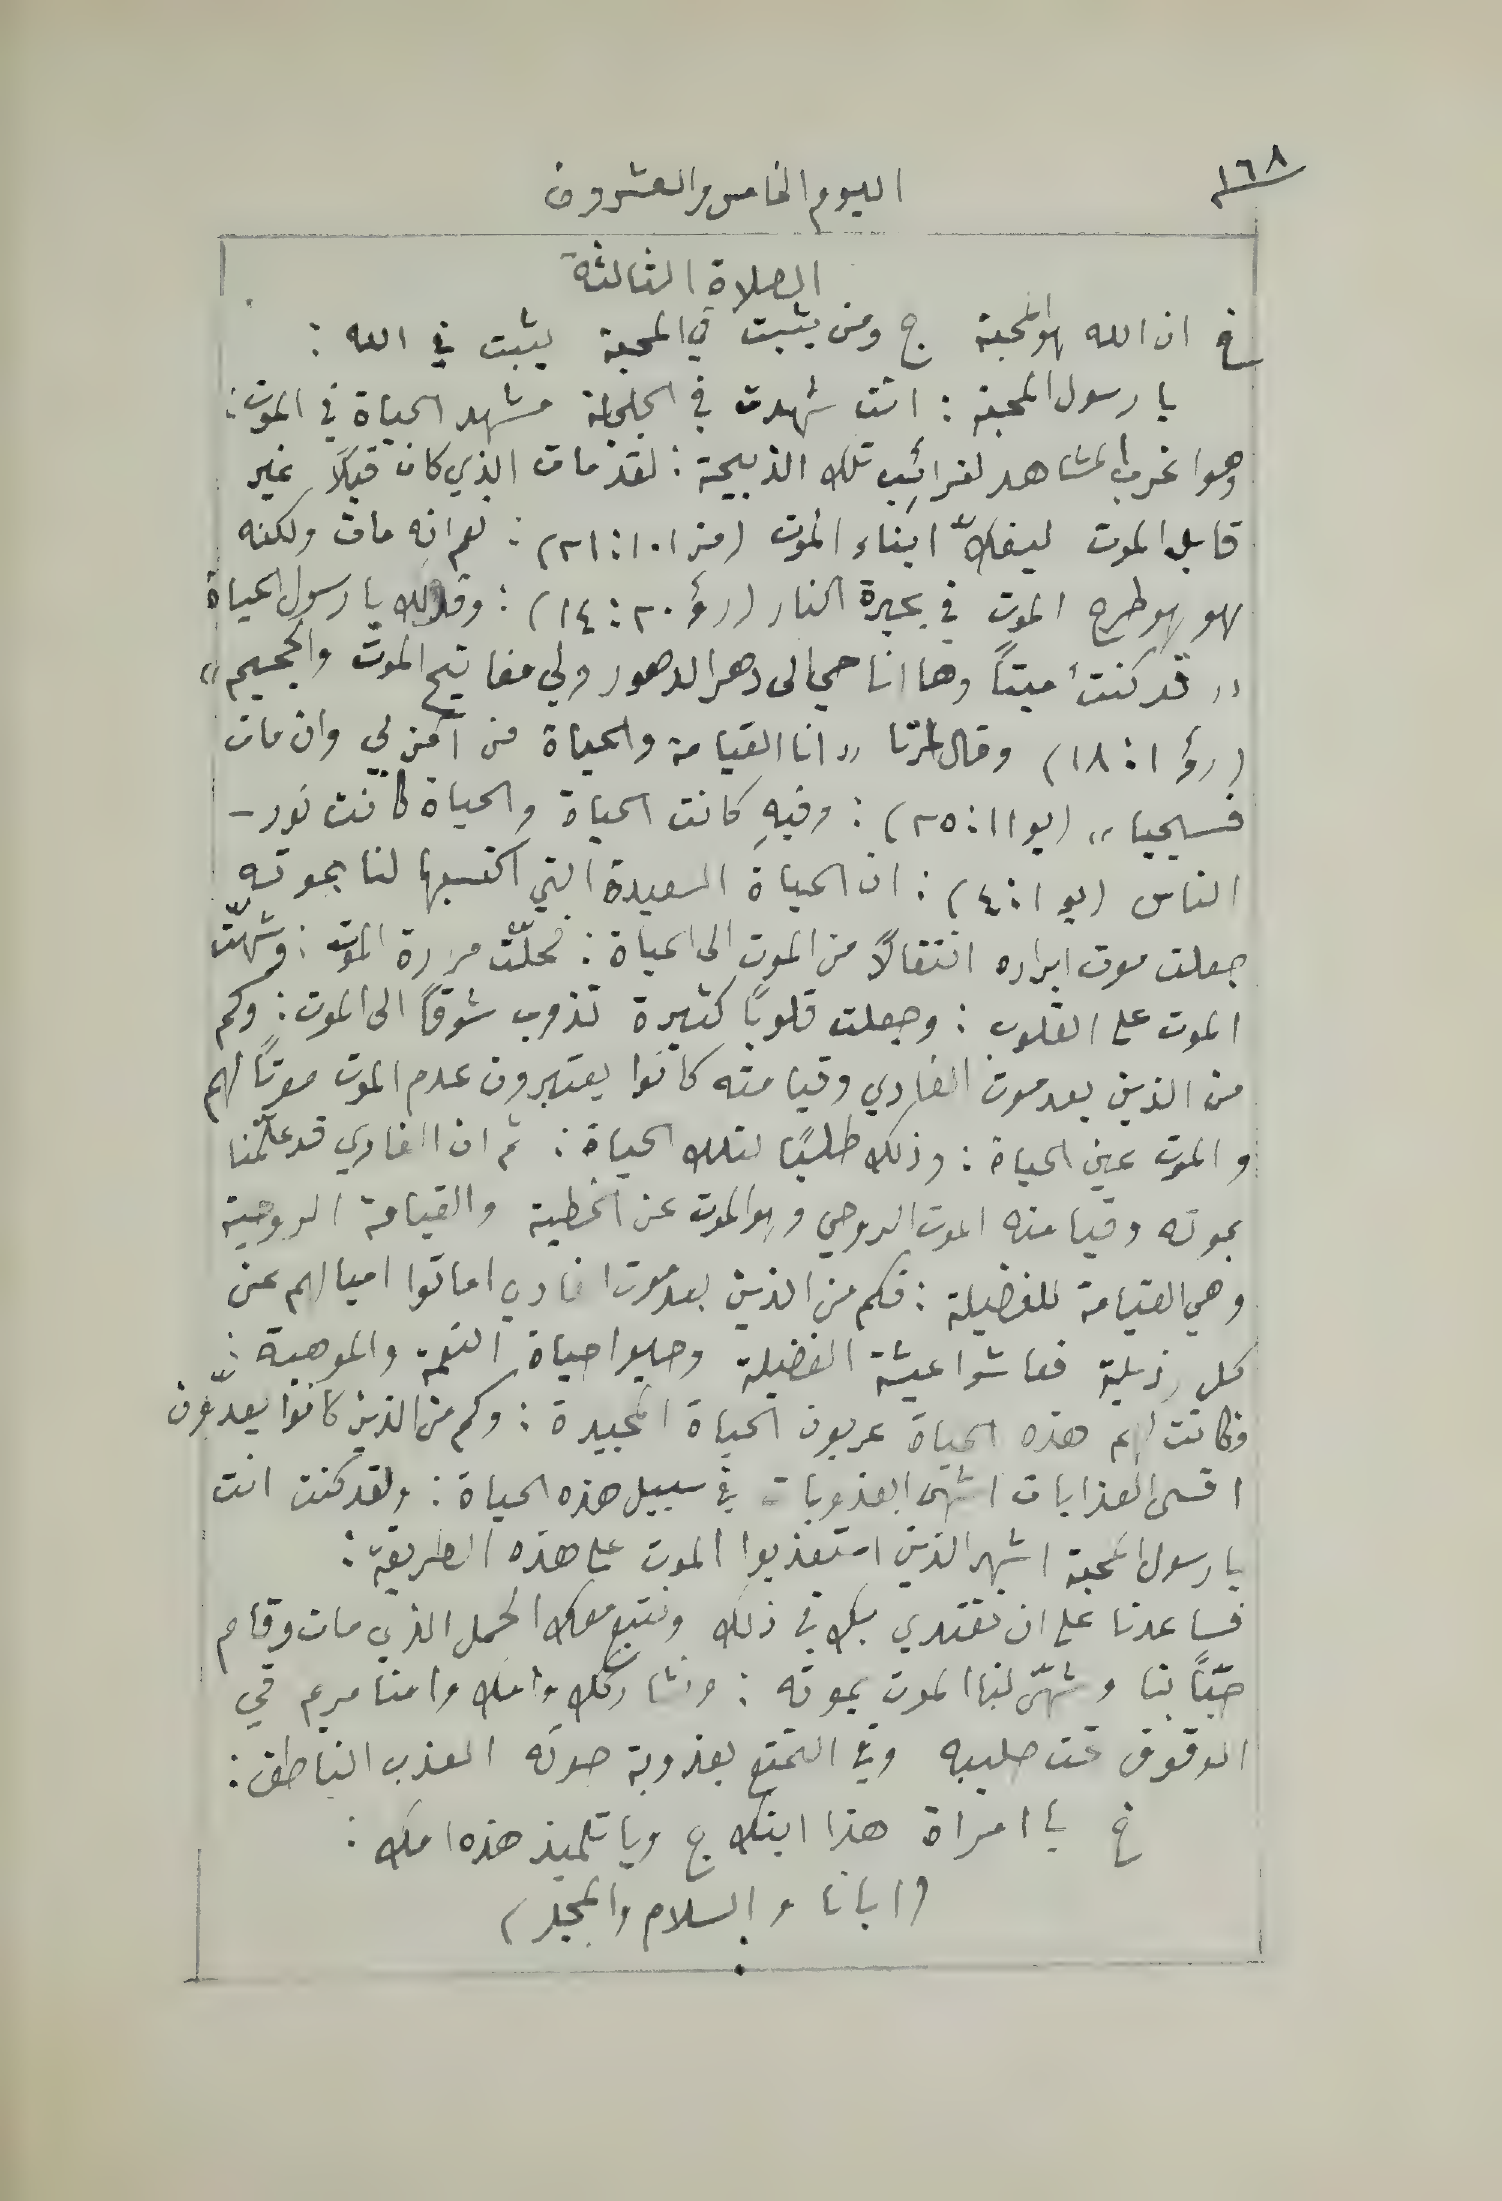 ١٦٨
اليوم الخامس والعشرون
الصلاة الثالثة
خ ان الله هو المحبة ج ومن يثبت في المحبة يثبت في الله :
يا رسول المحبة : انت شهدت في الجلجلة مشهد الحياة في الموت :
وهو اغرب المشاهد لغرائب تلك الذبيحة : لقد مات الذي كان قبلاً غير
قابل الموت ليفكّ ابناء الموت (مز ١٠١ : ٢١) : نعم انه مات ولكنه
هو هو طرح الموت في بحيرة النار (رؤ ٢٠ : ١٤) : وقال لك يا رسول الحياة
« قد كنت ميتاً وها انا حي الى دهر الدهور ولي مفاتيح الموت والجحيم »
(رؤ ١ : ١٨) وقال لمرتا « انا القيامة والحياة من آمن بي وان مات
فسيحيا » (يو ١١ : ٢٥) : وفيهِ كانت الحياة والحياة كانت نور –
الناس (يو ١ : ٤) : ان الحياة السعيدة التي اكتسبها لنا بموته
جعلت موت ابراره انتقالاً من الموت الى الحياة : فحلّت مرارة الموت : وشهّت
الموت على القلوب : وجعلت قلوباً كثيرة تذوب شوقاً الى الموت : وكم
من الذين بعد موت الفادي وقيامته كانوا يعتبرون عدم الموت موتاً لهم
والموت عين الحياة : وذلك طلباً لتلك الحياة : ثم ان الفادي قد علّمنا
بموته وقيامته الموت الروحي وهو الموت عن الخطية والقيامة الروحية
وهي القيامة للفضيلة : فكم من الذين بعد موت الفادي اماتوا اميالهم عن
كل رذيلة فعاشوا عيشة الفضيلة وحيوا حياة النعمة والموهبة :
فكانت لهم هذه الحياة عربون الحياة المجيدة : وكم من الذين كانوا يعدّون
اقسى العذابات اشهى العذوبات في سبيل هذه الحياة : ولقد كنت انت
يا رسول المحبة اشهر الذين استعذبوا الموت على هذه الطريقة :
فساعدنا على ان نقتدي بك في ذلك ونتبع معك الحمل الذي مات وقام
حبّاً بنا وشهّى لنا الموت بموته : ونشاركك وامك وامنا مريم في
الوقوف تحت صليبه وفي التمتع بعذوبة صوته العذب الناطق :
خ يا امراة هذا ابنك ج ويا تلميذ هذه امك :
(ابانا والسلام والمجد)